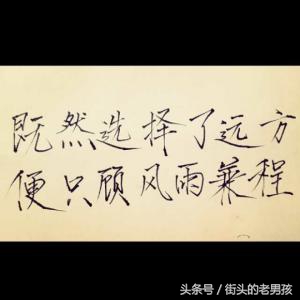 既然选择了远方
便只顾风雨兼程
头条号/街头的老男孩